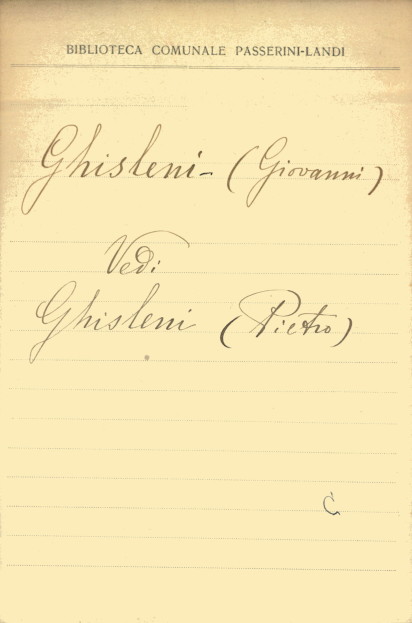 BIBLIOTECA COMUNALE PASSERINI-LANDI
Ghisleni - (Giovanni)
Vedi
Ghisleni (Pietro)
C